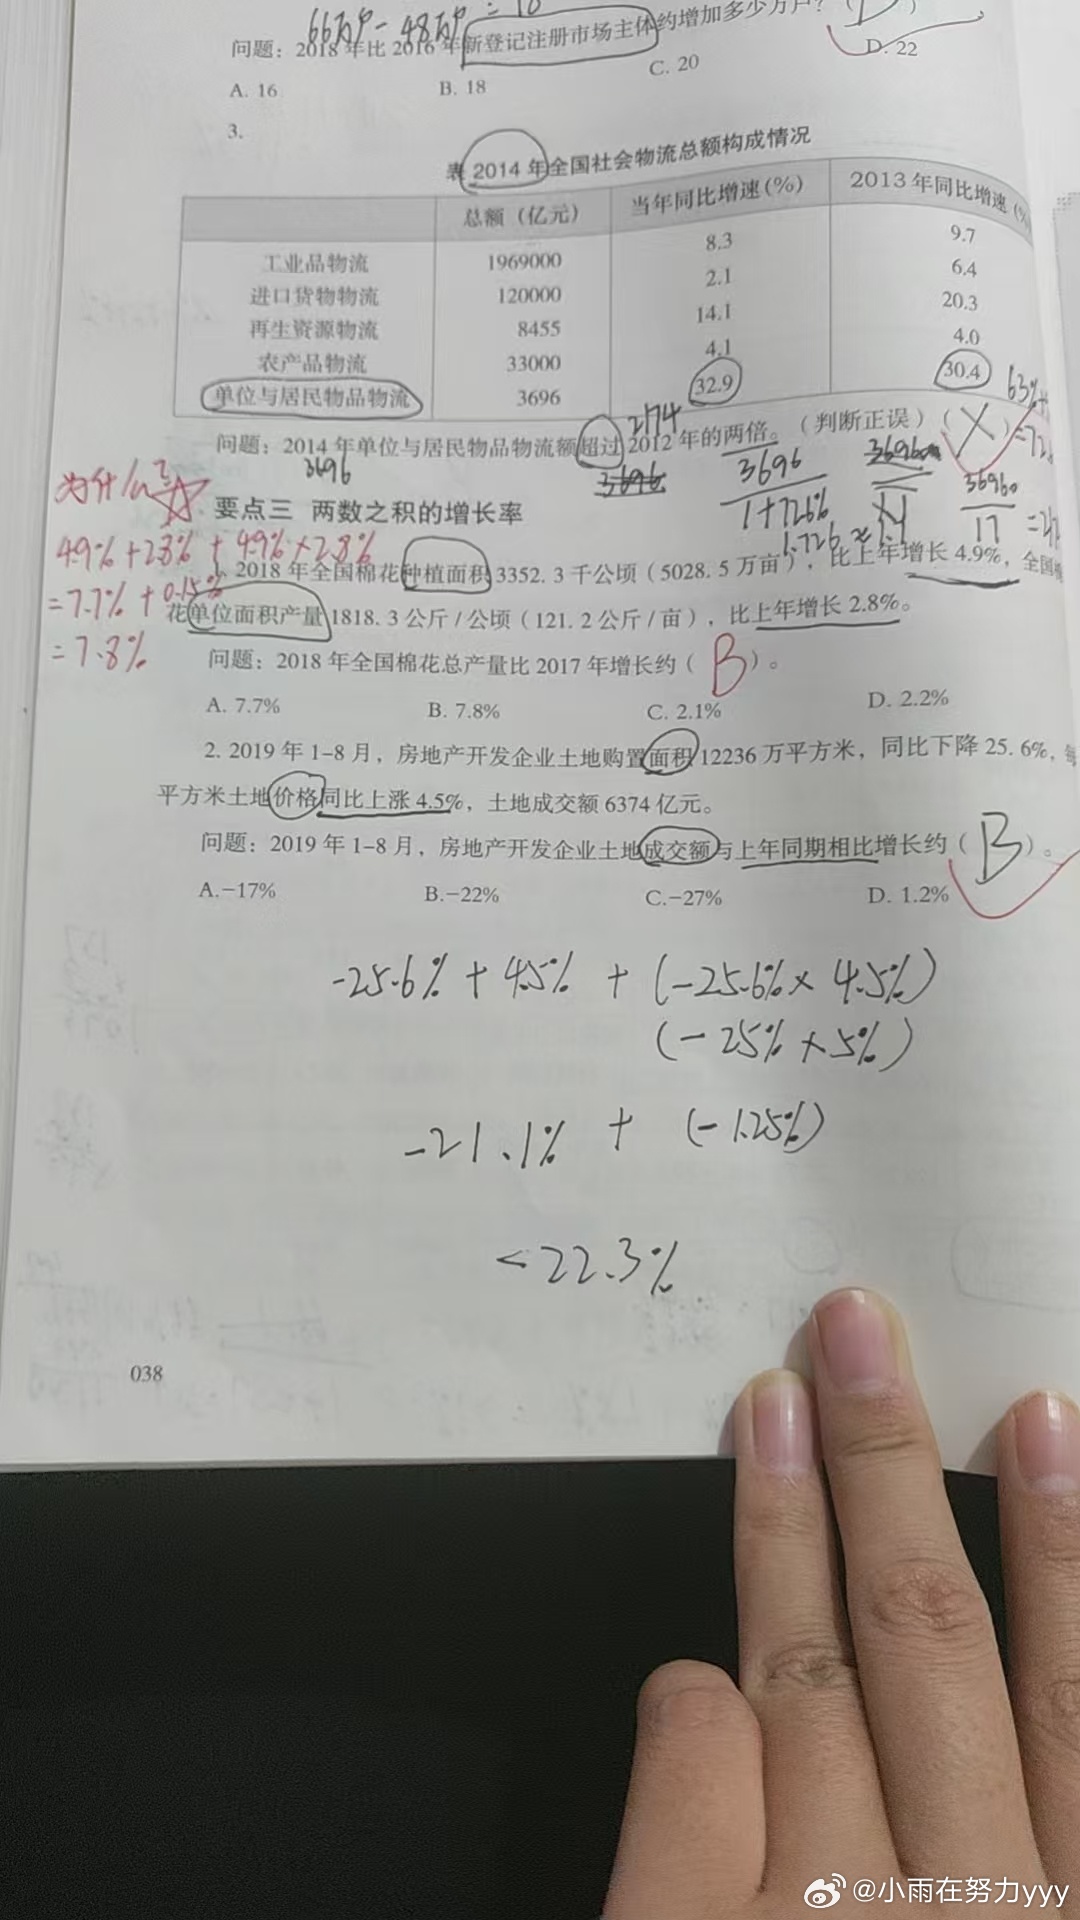 66万户-48万户=18
问题：2018年比2016年新登记注册市场主体约增加多少万户？（D）
A. 16 B. 18 C. 20 D. 22
3.
表 2014年全国社会物流总额构成情况
总额（亿元） 当年同比增速（%） 2013年同比增速（%
工业品物流 1969000 8.3 9.7
进口货物物流 120000 2.1 6.4
再生资源物流 8455 14.1 20.3
农产品物流 33000 4.1 4.0
单位与居民物品物流 3696 32.9 30.4
63%+
2174
问题：2014年单位与居民物品物流额超过2012年的两倍。（判断正误）（X）
=72.
3696
3696
3696
1+72.6%
1.726≈1.7
36960
17
为什么？
要点三 两数之积的增长率
4.9%+2.8%+4.9%×2.8%
=7.7%+0.15%
=7.8%
1. 2018年全国棉花种植面积3352.3千公顷（5028.5万亩），比上年增长4.9%，全国棉
花单位面积产量1818.3公斤/公顷（121.2公斤/亩），比上年增长2.8%。
问题：2018年全国棉花总产量比2017年增长约（B）。
A. 7.7% B. 7.8% C. 2.1% D. 2.2%
2. 2019年1-8月，房地产开发企业土地购置面积12236万平方米，同比下降25.6%，每
平方米土地价格同比上涨4.5%，土地成交额6374亿元。
问题：2019年1-8月，房地产开发企业土地成交额与上年同期相比增长约（B）。
A.-17% B.-22% C.-27% D. 1.2%
-25.6%+4.5%+(-25.6%×4.5%)
(-25%×5%)
-21.1%+(-1.25%)
<22.3%
038
@小雨在努力yyy